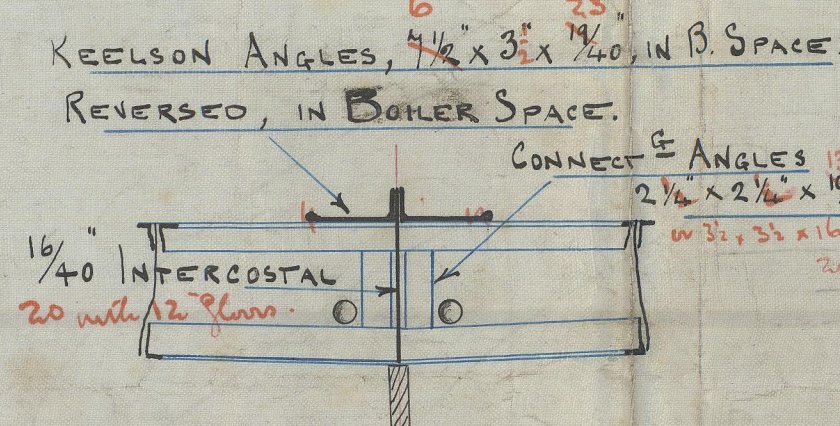 6 23
KEELSON ANGLES, 7 1/2" x 3 1/2" x 19/40", IN B. SPACE.
REVERSED, IN BOILER SPACE.
CONNECTG ANGLES
2 1/4" x 2 1/4" x
or 3 1/2 x 3 1/2 x 16
16/40" INTERCOSTAL
20 with 12" floors.